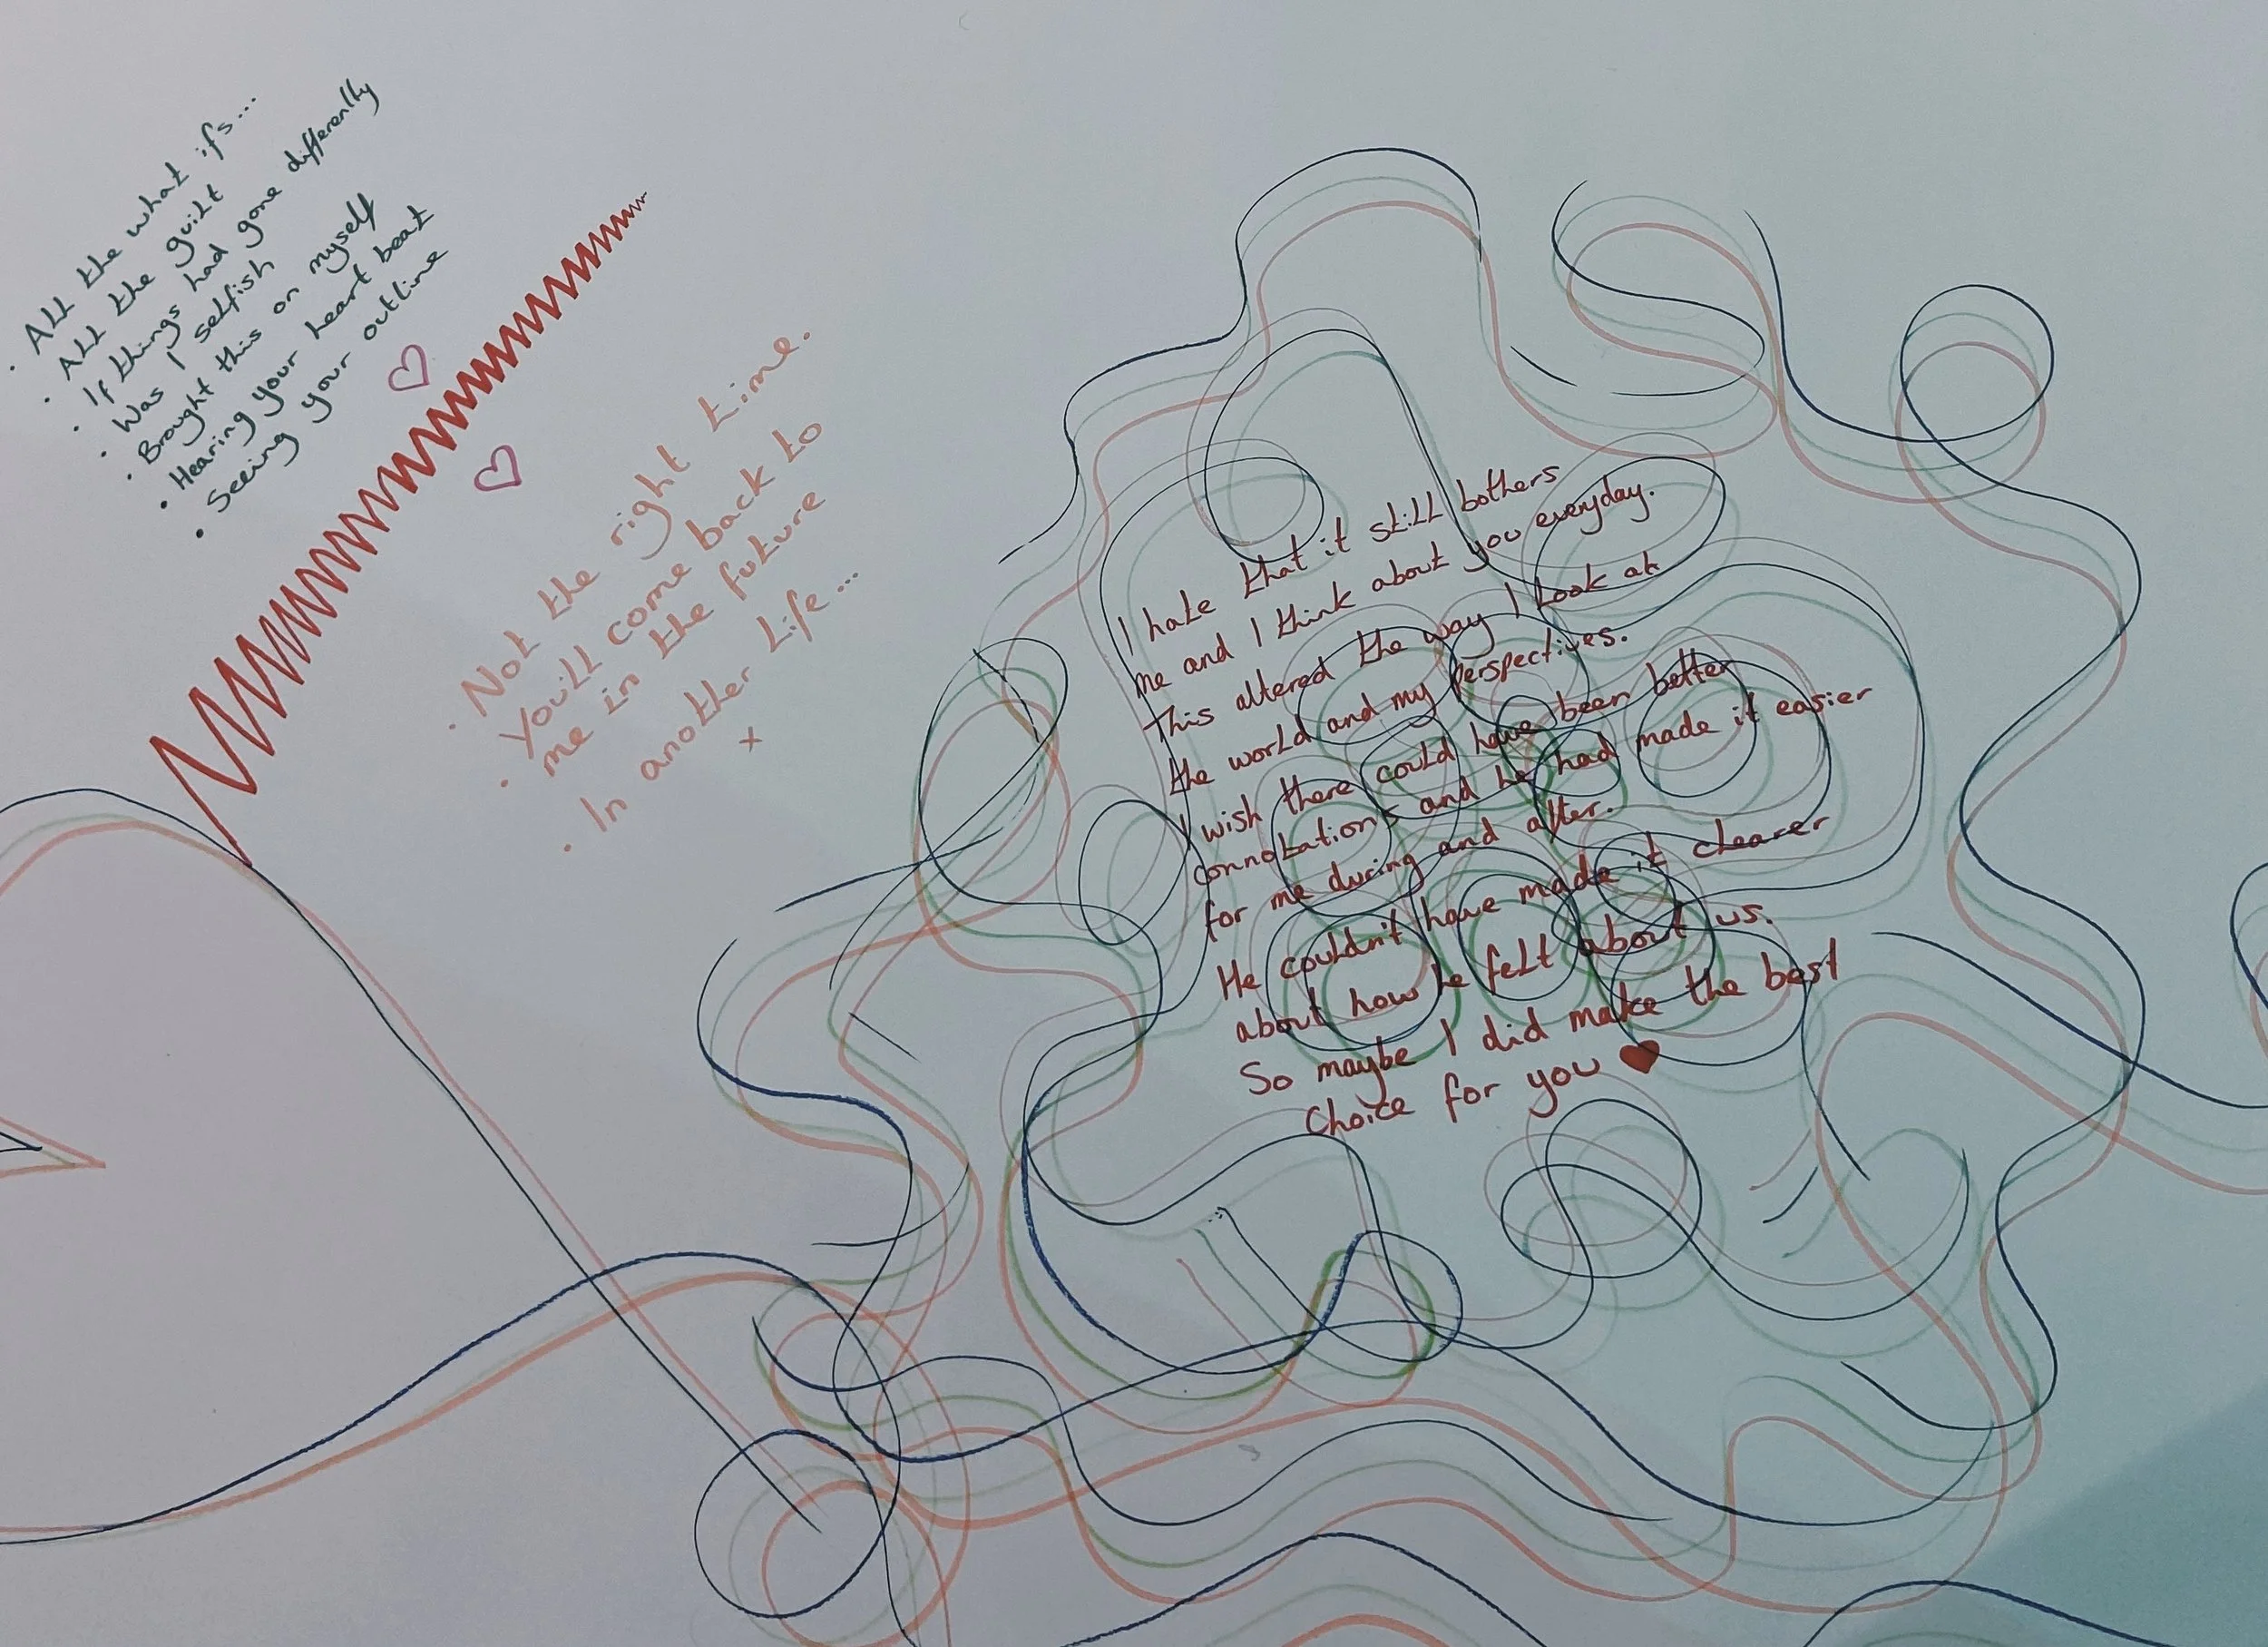 • All the what ifs...
• All the guilt
• If things had gone differently
• Was I selfish
• Brought this on myself
• Hearing your heart beat
• Seeing your outline
• Not the right time.
• You'll come back to
me in the future
• In another life...
x
I hate that it still bothers
me and I think about you everyday.
This altered the way I look at
the world and my perspectives.
I wish there could have been better
connotations and he had made it easier
for me during and after.
He couldn't have made it clearer
about how he felt about us.
So maybe I did make the best
choice for you ♥